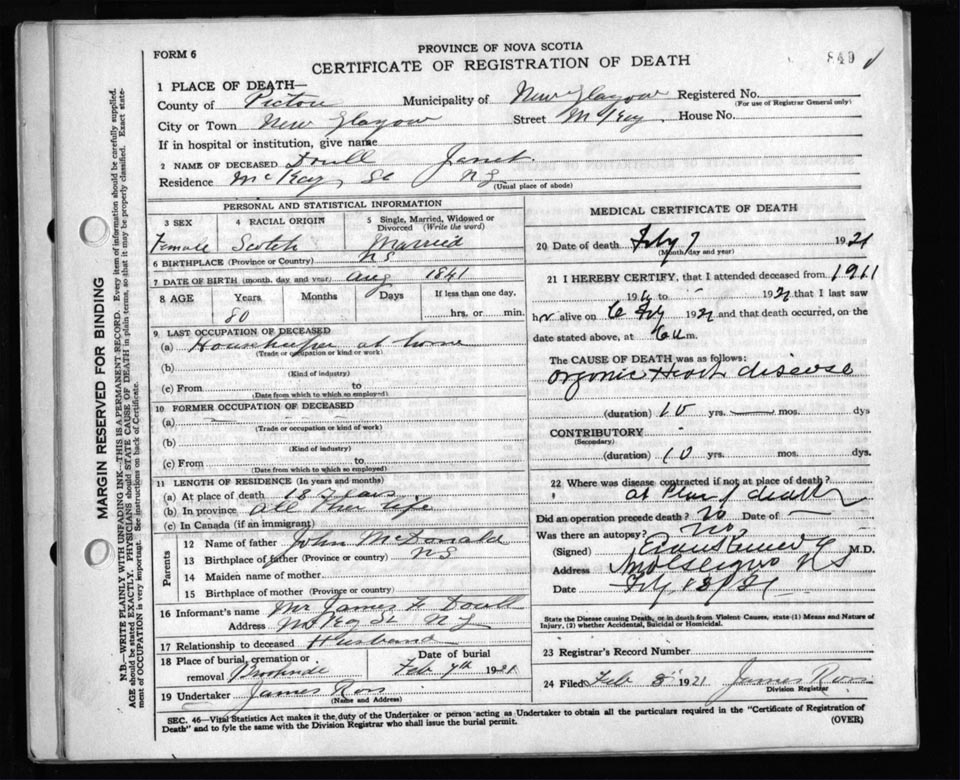 PROVINCE OF NOVA SCOTIA
FORM 6
840
CERTIFICATE OF REGISTRATION OF DEATH
1 PLACE OF DEATH—
County of Pictou Municipality of New Glasgow Registered No.
(For use of Registrar General only)
City or Town New Glasgow Street McKay House No.
If in hospital or institution, give name
2 NAME OF DECEASED Doull Janet
Residence McKay St NS
(Usual place of abode)
PERSONAL AND STATISTICAL INFORMATION
3 SEX 4 RACIAL ORIGIN 5 Single, Married, Widowed or Divorced (Write the word)
Female Scotch Married
6 BIRTHPLACE (Province or Country) NS
7 DATE OF BIRTH (month, day and year) Aug 1841
8 AGE Years Months Days If less than one day.
80 hrs. or min.
9 LAST OCCUPATION OF DECEASED
(a) Housekeeper at home
(Trade or occupation or kind of work)
(b)
(Kind of industry)
(c) From to
(Date from which to which so employed)
10 FORMER OCCUPATION OF DECEASED
(a)
(Trade or occupation or kind of work)
(b)
(Kind of industry)
(c) From to
(Date from which to which so employed)
11 LENGTH OF RESIDENCE (In years and months)
(a) At place of death 18 years
(b) In province All her life
(c) In Canada (if an immigrant)
Parents
12 Name of father John McDonald
13 Birthplace of father (Province or country) NS
14 Maiden name of mother
15 Birthplace of mother (Province or country)
16 Informant's name Mr James Doull
Address McKay St NS
17 Relationship to deceased Husband
18 Place of burial, cremation or removal Date of burial
Feb 9th 1921
19 Undertaker James Ross
(Name and Address)
MEDICAL CERTIFICATE OF DEATH
20 Date of death Feby 7 1921
(Month/day and year)
21 I HEREBY CERTIFY, that I attended deceased from 1911
19 to 192 that I last saw
her alive on 6 Feby 192 and that death occurred, on the
date stated above, at m.
The CAUSE OF DEATH was as follows:
Organic Heart disease
(duration) 10 yrs. mos. dys
CONTRIBUTORY
(Secondary)
(duration) 10 yrs. mos. dys.
22 Where was disease contracted if not at place of death?
at Place of death
Did an operation precede death? No Date of
Was there an autopsy? No
(Signed) M.D.
Address NS
Date Feby
State the Disease causing Death, or in death from Violent Causes, state (1) Means and Nature of
Injury, (2) whether Accidental, Suicidal or Homicidal.
23 Registrar's Record Number
24 Filed Feb 8 1921 James Ross
Division Registrar
SEC. 46—Vital Statistics Act makes it the duty of the Undertaker or person acting as Undertaker to obtain all the particulars required in the "Certificate of Registration of
Death" and to fyle the same with the Division Registrar who shall issue the burial permit. (OVER)
MARGIN RESERVED FOR BINDING
N.B.—WRITE PLAINLY WITH UNFADING INK—THIS IS A PERMANENT RECORD. Every item of information should be carefully supplied.
AGE should be stated EXACTLY. PHYSICIANS should STATE CAUSE OF DEATH in plain terms, so that it may be properly classified. Exact state-
ment of OCCUPATION is very important. See instructions on back of Certificate.